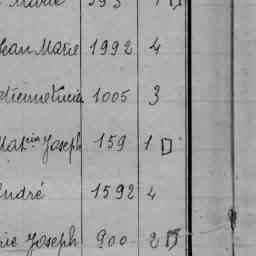 Jean Marie 1992 4
Etienne Lucien 1005 3
Mathin Joseph 159 1
André 1592 4
Joseph 900 2